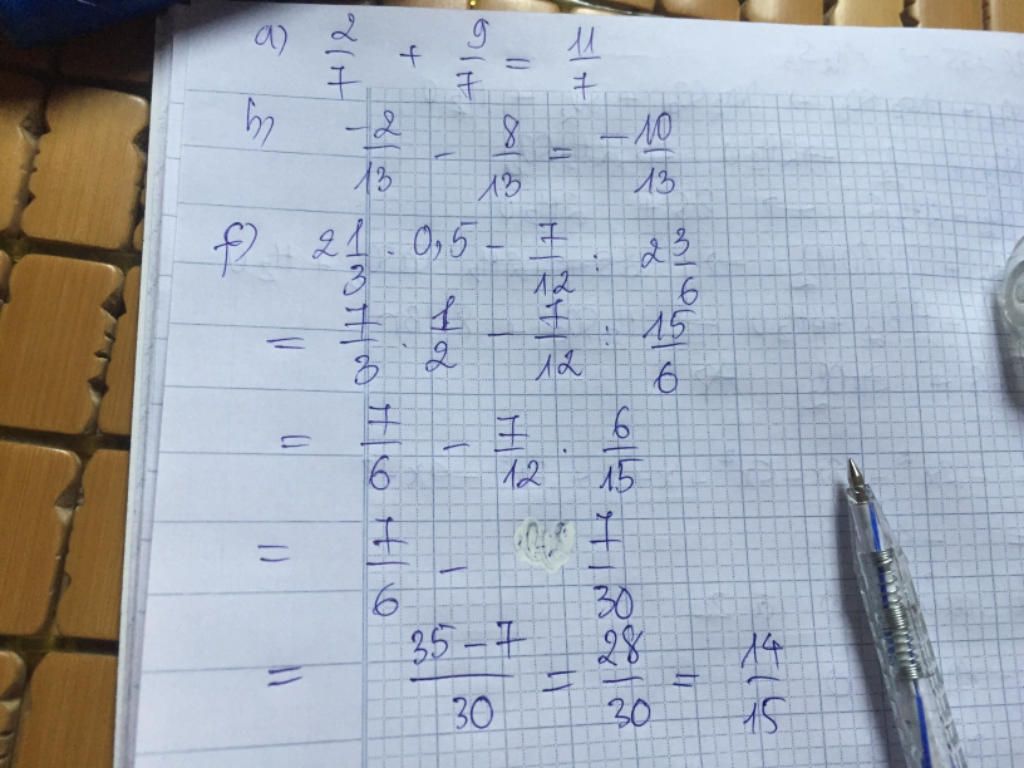 a) 2/7 + 9/7 = 11/7
b) -2/13 - 8/13 = -10/13
f) 2 1/3 . 0,5 - 7/12 : 2 3/6
= 7/3 . 1/2 - 7/12 : 15/6
= 7/6 - 7/12 . 6/15
= 7/6 - 7/30
= 35-7/30 = 28/30 = 14/15